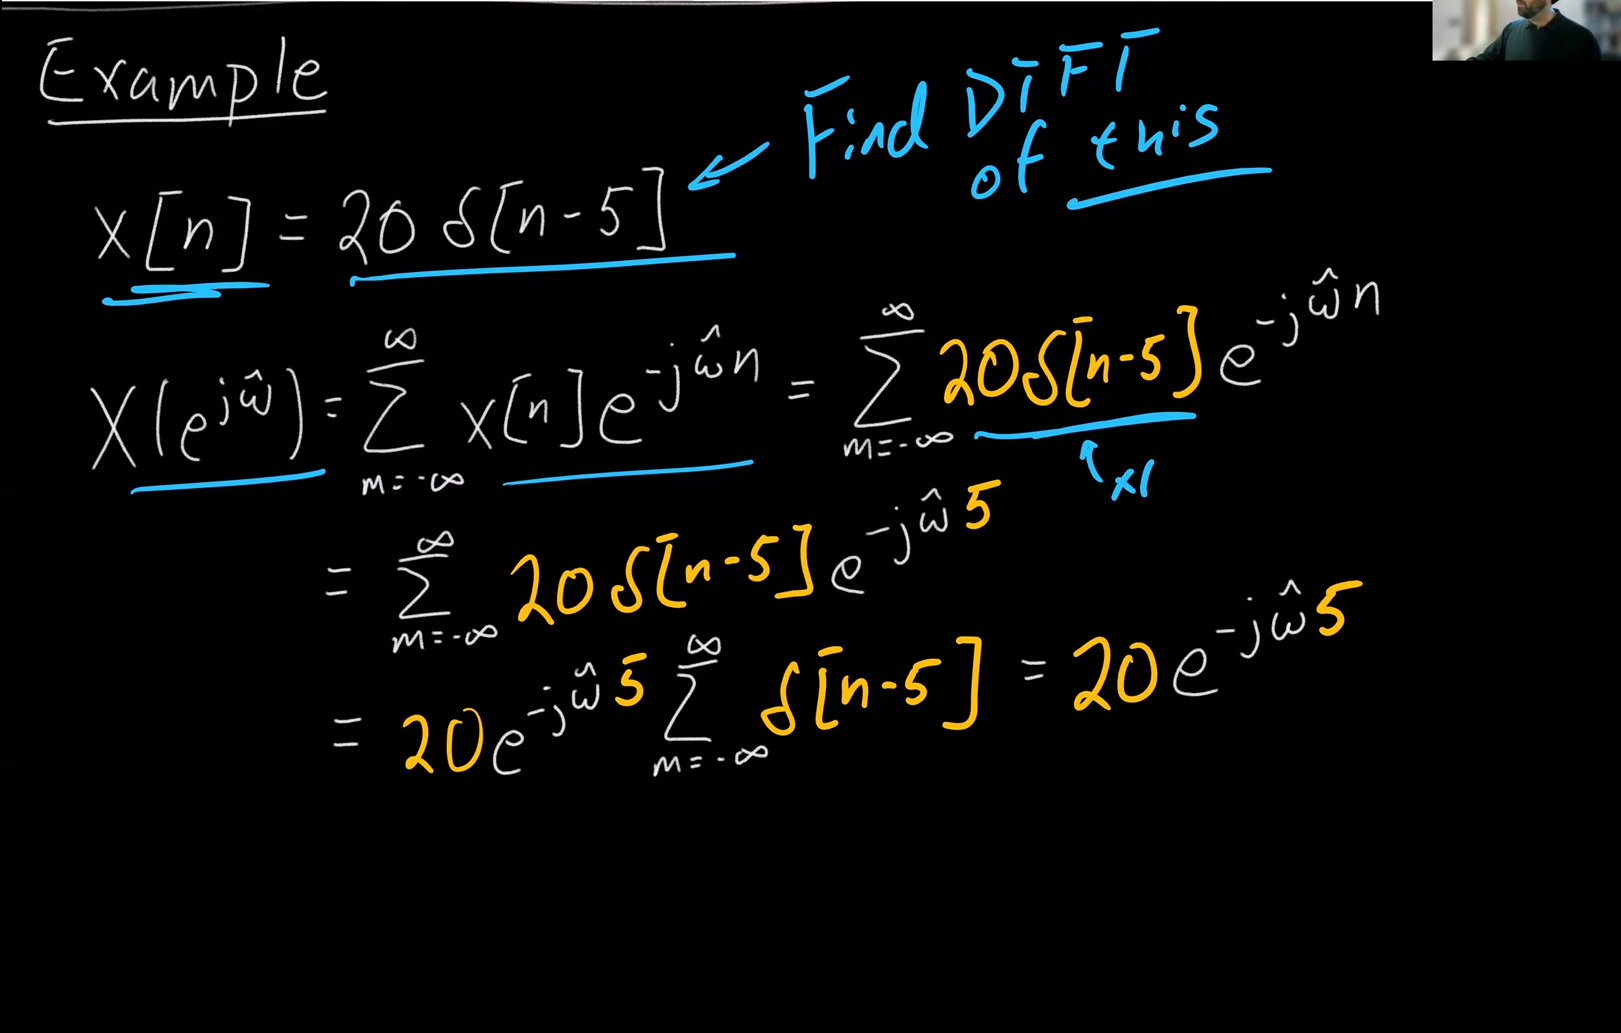 Example
Find DTFT
of this
x[n] = 20 δ[n-5]
X(e^{jω̂}) = ∑_{m=-∞}^{∞} x[n] e^{-jω̂n} = ∑_{m=-∞}^{∞} 20δ[n-5] e^{-jω̂n}
= ∑_{m=-∞}^{∞} 20δ[n-5] e^{-jω̂5}
= 20e^{-jω̂5} ∑_{m=-∞}^{∞} δ[n-5] = 20e^{-jω̂5}